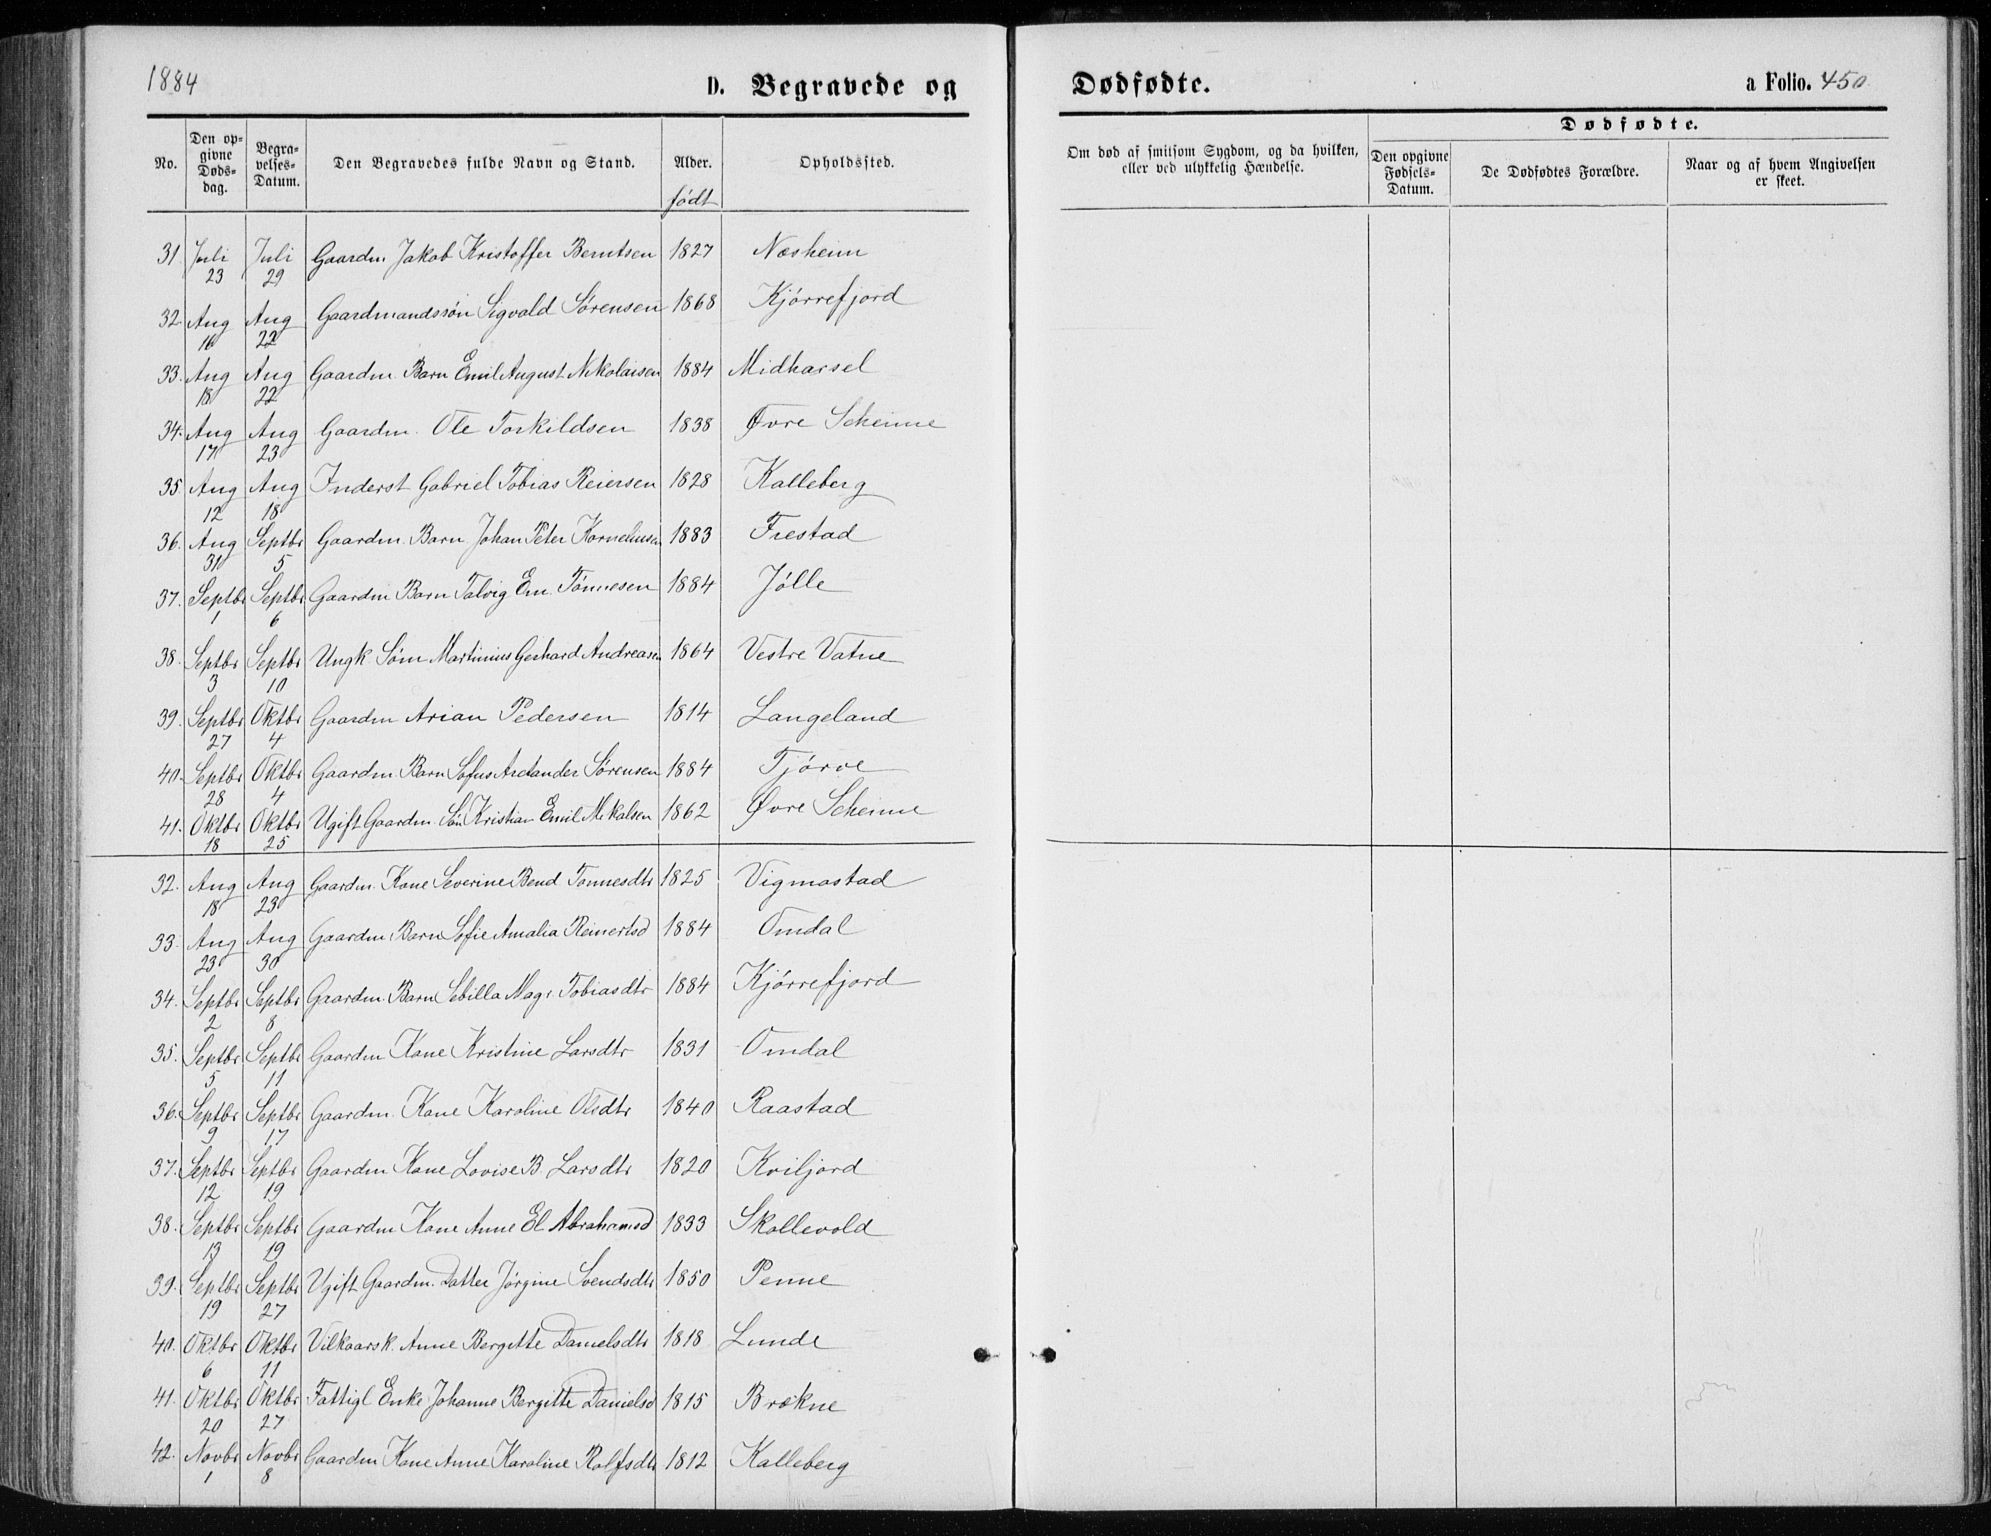 1884
D. Begravede og Dødfødte.
a Folio. 450
No.
Den opgivne Dødsdag.
Begravelses-Datum.
Den Begravedes fulde Navn og Stand.
Alder. født
Opholdssted.
Om død af smitsom Sygdom, og da hvilken, eller ved ulykkelig Hændelse.
Dødfødte.
Den opgivne Fødsels-Datum.
De Dødfødtes Forældre.
Naar og af hvem Angivelsen er skeet.
31. Juli 23 Juli 29 Gaardm. Jakob Kristoffer Berntsen 1827 Næsheim
32. Aug 16 Aug 22 Gaardmandssøn Sigvald Sørensen 1868 Kjørrefjord
33. Aug 18 Aug 22 Gaardm. Barn Emil August Nikolaisen 1884 Midharsel
34. Aug 17 Aug 23 Gaardm. Ole Torkildsen 1838 Øvre Scheime
35. Aug 12 Aug 18 Inderst Gabriel Tobias Reiersen 1828 Kalleberg
36. Aug 31 Septbr 5 Gaardm. Barn Johan Peter Korneliusen 1883 Frestad
37. Septbr 1 Septbr 6 Gaardm Barn Talvig Em. Tønnesen 1884 Jølle
38. Septbr 3 Septbr 10 Ungk Søm Martinius Gerhard Andreasen 1864 Vestre Vatne
39. Septbr 27 Oktbr 4 Gaardm Arian Pedersen 1814 Langeland
40. Septbr 28 Oktbr 4 Gaardm. Barn Sofus Arctander Sørensen 1884 Tjørve
41. Oktbr 18 Oktbr 25 Ugift Gaardm. Søn Kristian Emil Mikalsen 1862 Øvre Scheime
32. Aug 18 Aug 23 Gaardm. Kone Severine Bend Tønnesdtr 1825 Vigmostad
33. Aug 23 Aug 30 Gaardm. Barn Sofie Amalia Reinertsd 1884 Omdal
34. Septbr 2 Septbr 8 Gaardm. Barn Sebilla Magr Tobiasdtr 1884 Kjørrefjord
35. Septbr 5 Septbr 11 Gaardm Kone Kristine Larsdtr 1831 Omdal
36. Septbr 9 Septbr 17 Gaardm. Kone Karoline Olsdtr 1840 Raastad
37. Septbr 12 Septbr 19 Gaardm Kone Lovise B. Larsdtr 1820 Kviljord
38. Septbr 13 Septbr 19 Gaardm Kone Anne El Abrahamsd 1833 Skollevold
39. Septbr 19 Septbr 27 Ugift Gaardm. Datter Jørgine Svendsdtr 1850 Penne
40. Oktbr 6 Oktbr 11 Vilkaarsk. Anne Bergitte Danielsdtr 1818 Lunde
41. Oktbr 20 Oktbr 27 Fattigl Enke Johanne Bergitte Danielsd 1815 Brækne
42. Novbr 1 Novbr 8 Gaardm Kone Anne Karoline Rolfsdtr 1812 Kalleberg